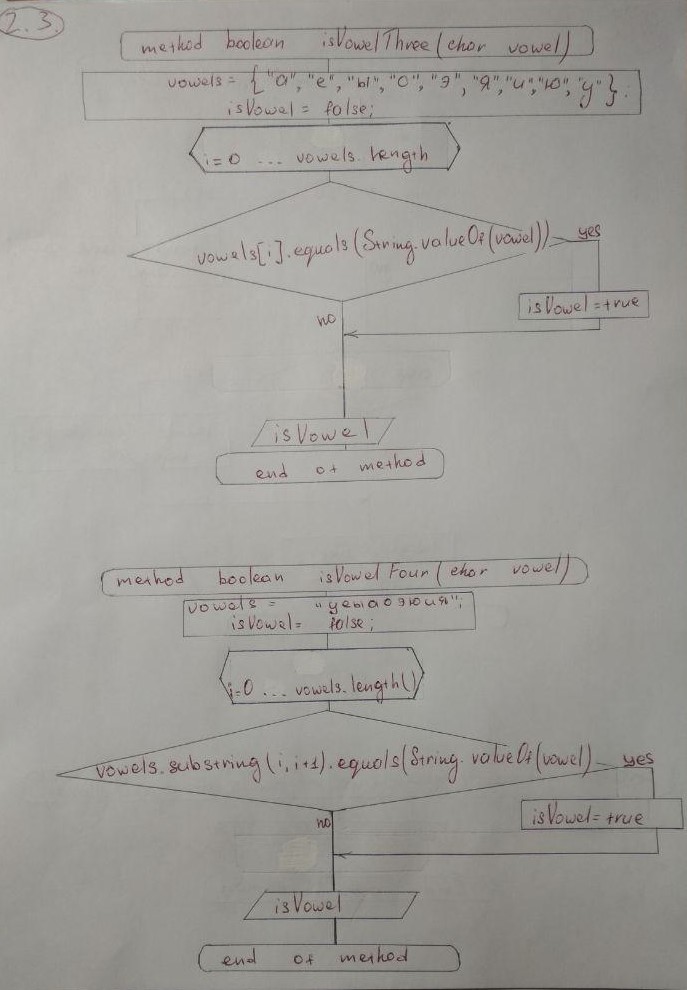 2.3.
method boolean isVowelThree(char vowel)
vowels = {"а", "е", "ы", "о", "э", "я", "и", "ю", "у"};
isVowel = false;
i=0 ... vowels.length
vowels[i].equals(String.valueOf(vowel))
yes
isVowel=true
no
isVowel
end of method
method boolean isVowelFour(char vowel)
vowels = "уеыаоэюия";
isVowel= false;
i=0 ... vowels.length()
vowels.substring(i,i+1).equals(String.valueOf(vowel)
yes
isVowel=true
no
isVowel
end of method